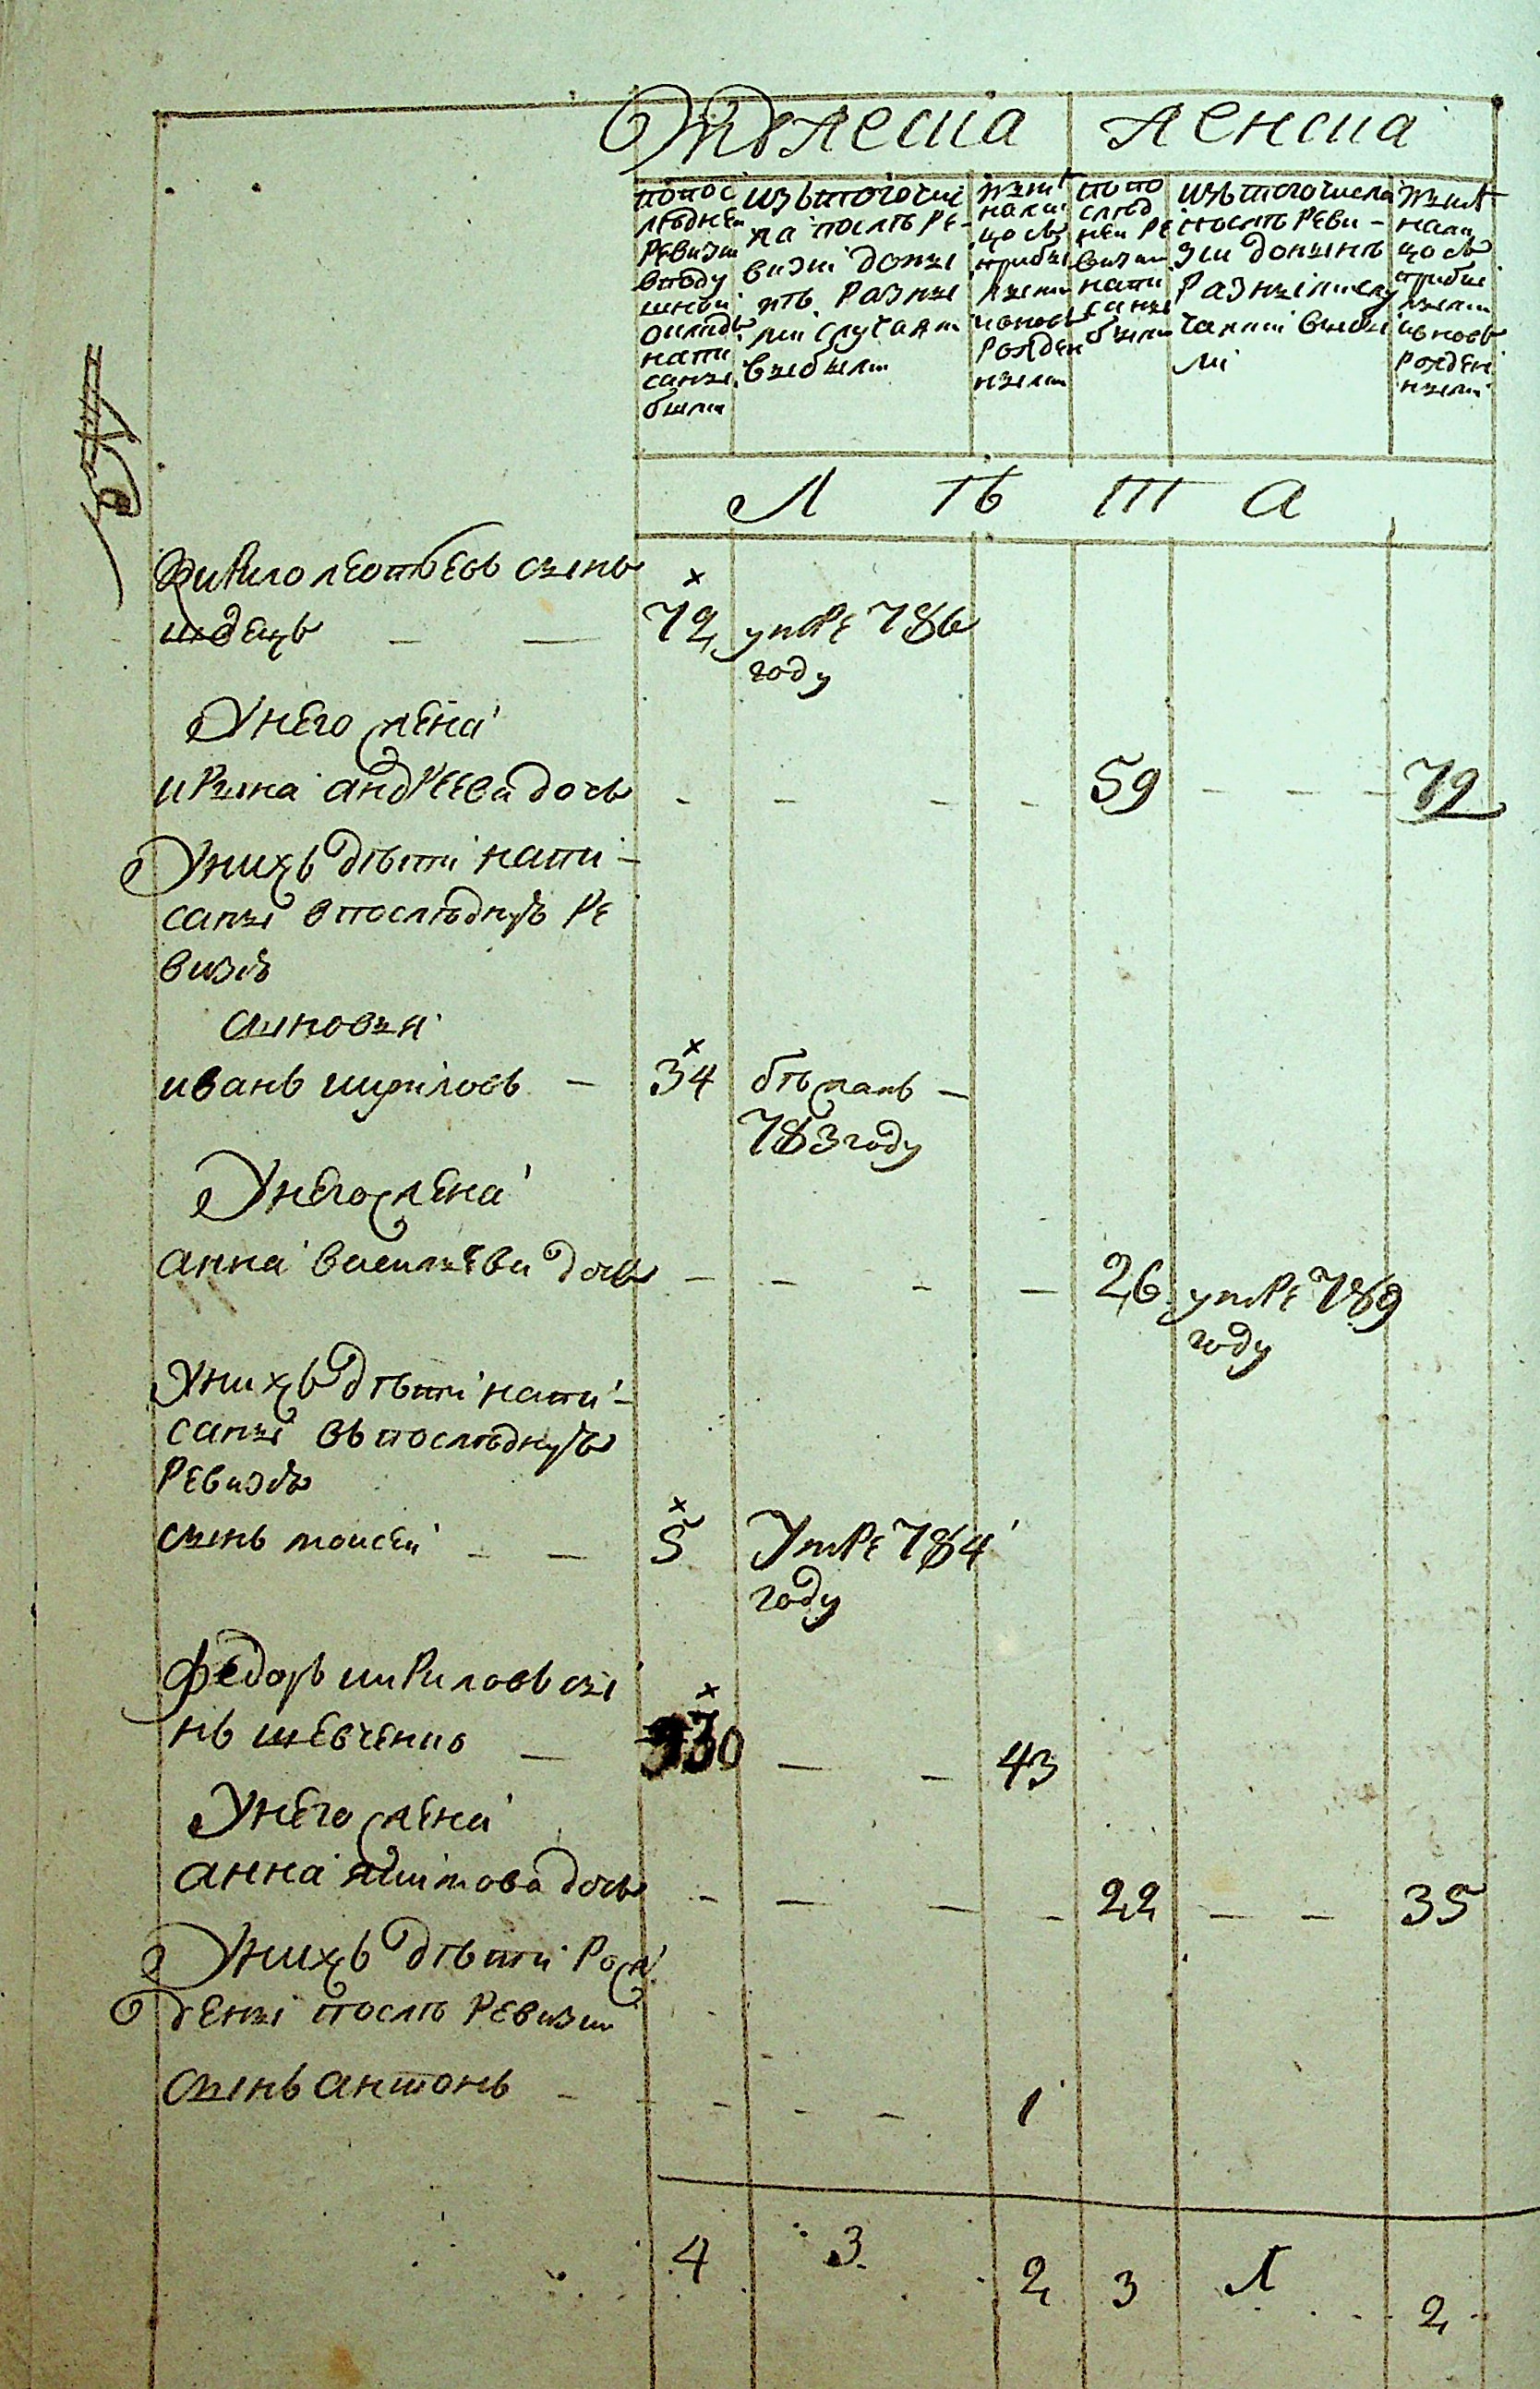 Мужеска
Женска
по пос
леднеи
ревизии
в поду
шныи
окладъ
напи
саны
были
изъ того чис
ла после ре-
визии до ны
нѣ разны
ми случаям
выбыли
ныне
нали
цо съ
прибы
лыми
и вновь
рожден
ными
по по
след
неи ре
визии
напи
саны
были
изъ того числа
после реви-
зии до нынѣ
разными слу
чаями выбы
ли
ныне
нали
цо съ
прибы
лыми
и вновь
рожден
ными
Л ѣ т а
Кирило леонтьевъ сынъ
швецъ — — 72 умре 786
году
У него жена
ирына андреева дочь - - - - 59 - - - 72
У нихъ дѣти напи-
саны в последную ре
визию
сыновья
иванъ кириловъ — 34 бѣжалъ —
783 году
У него жена
анна васильева дочь - - - - 26 умре 789
году
У нихъ дѣти напи-
саны въ последную
ревизию
сынъ моисей - - 5 Умре 784
году
федоръ кириловъ сы
нъ шевченко — 30 — - 43
У него жена
анна дочь - - - - 22 - - 35
У нихъ дѣти рож
дены после ревизии
сынъ антонъ - - - - - 1
4 3 2 3 1 2